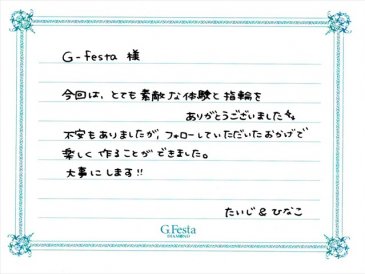 G-festa 様
今回は、とても素敵な体験と指輪を
ありがとうございました
不安もありましたが、フォローしていただいたおかげで
楽しく作ることができました。
大事にします!!
たいじ & ひなこ
G.Festa
DIAMOND